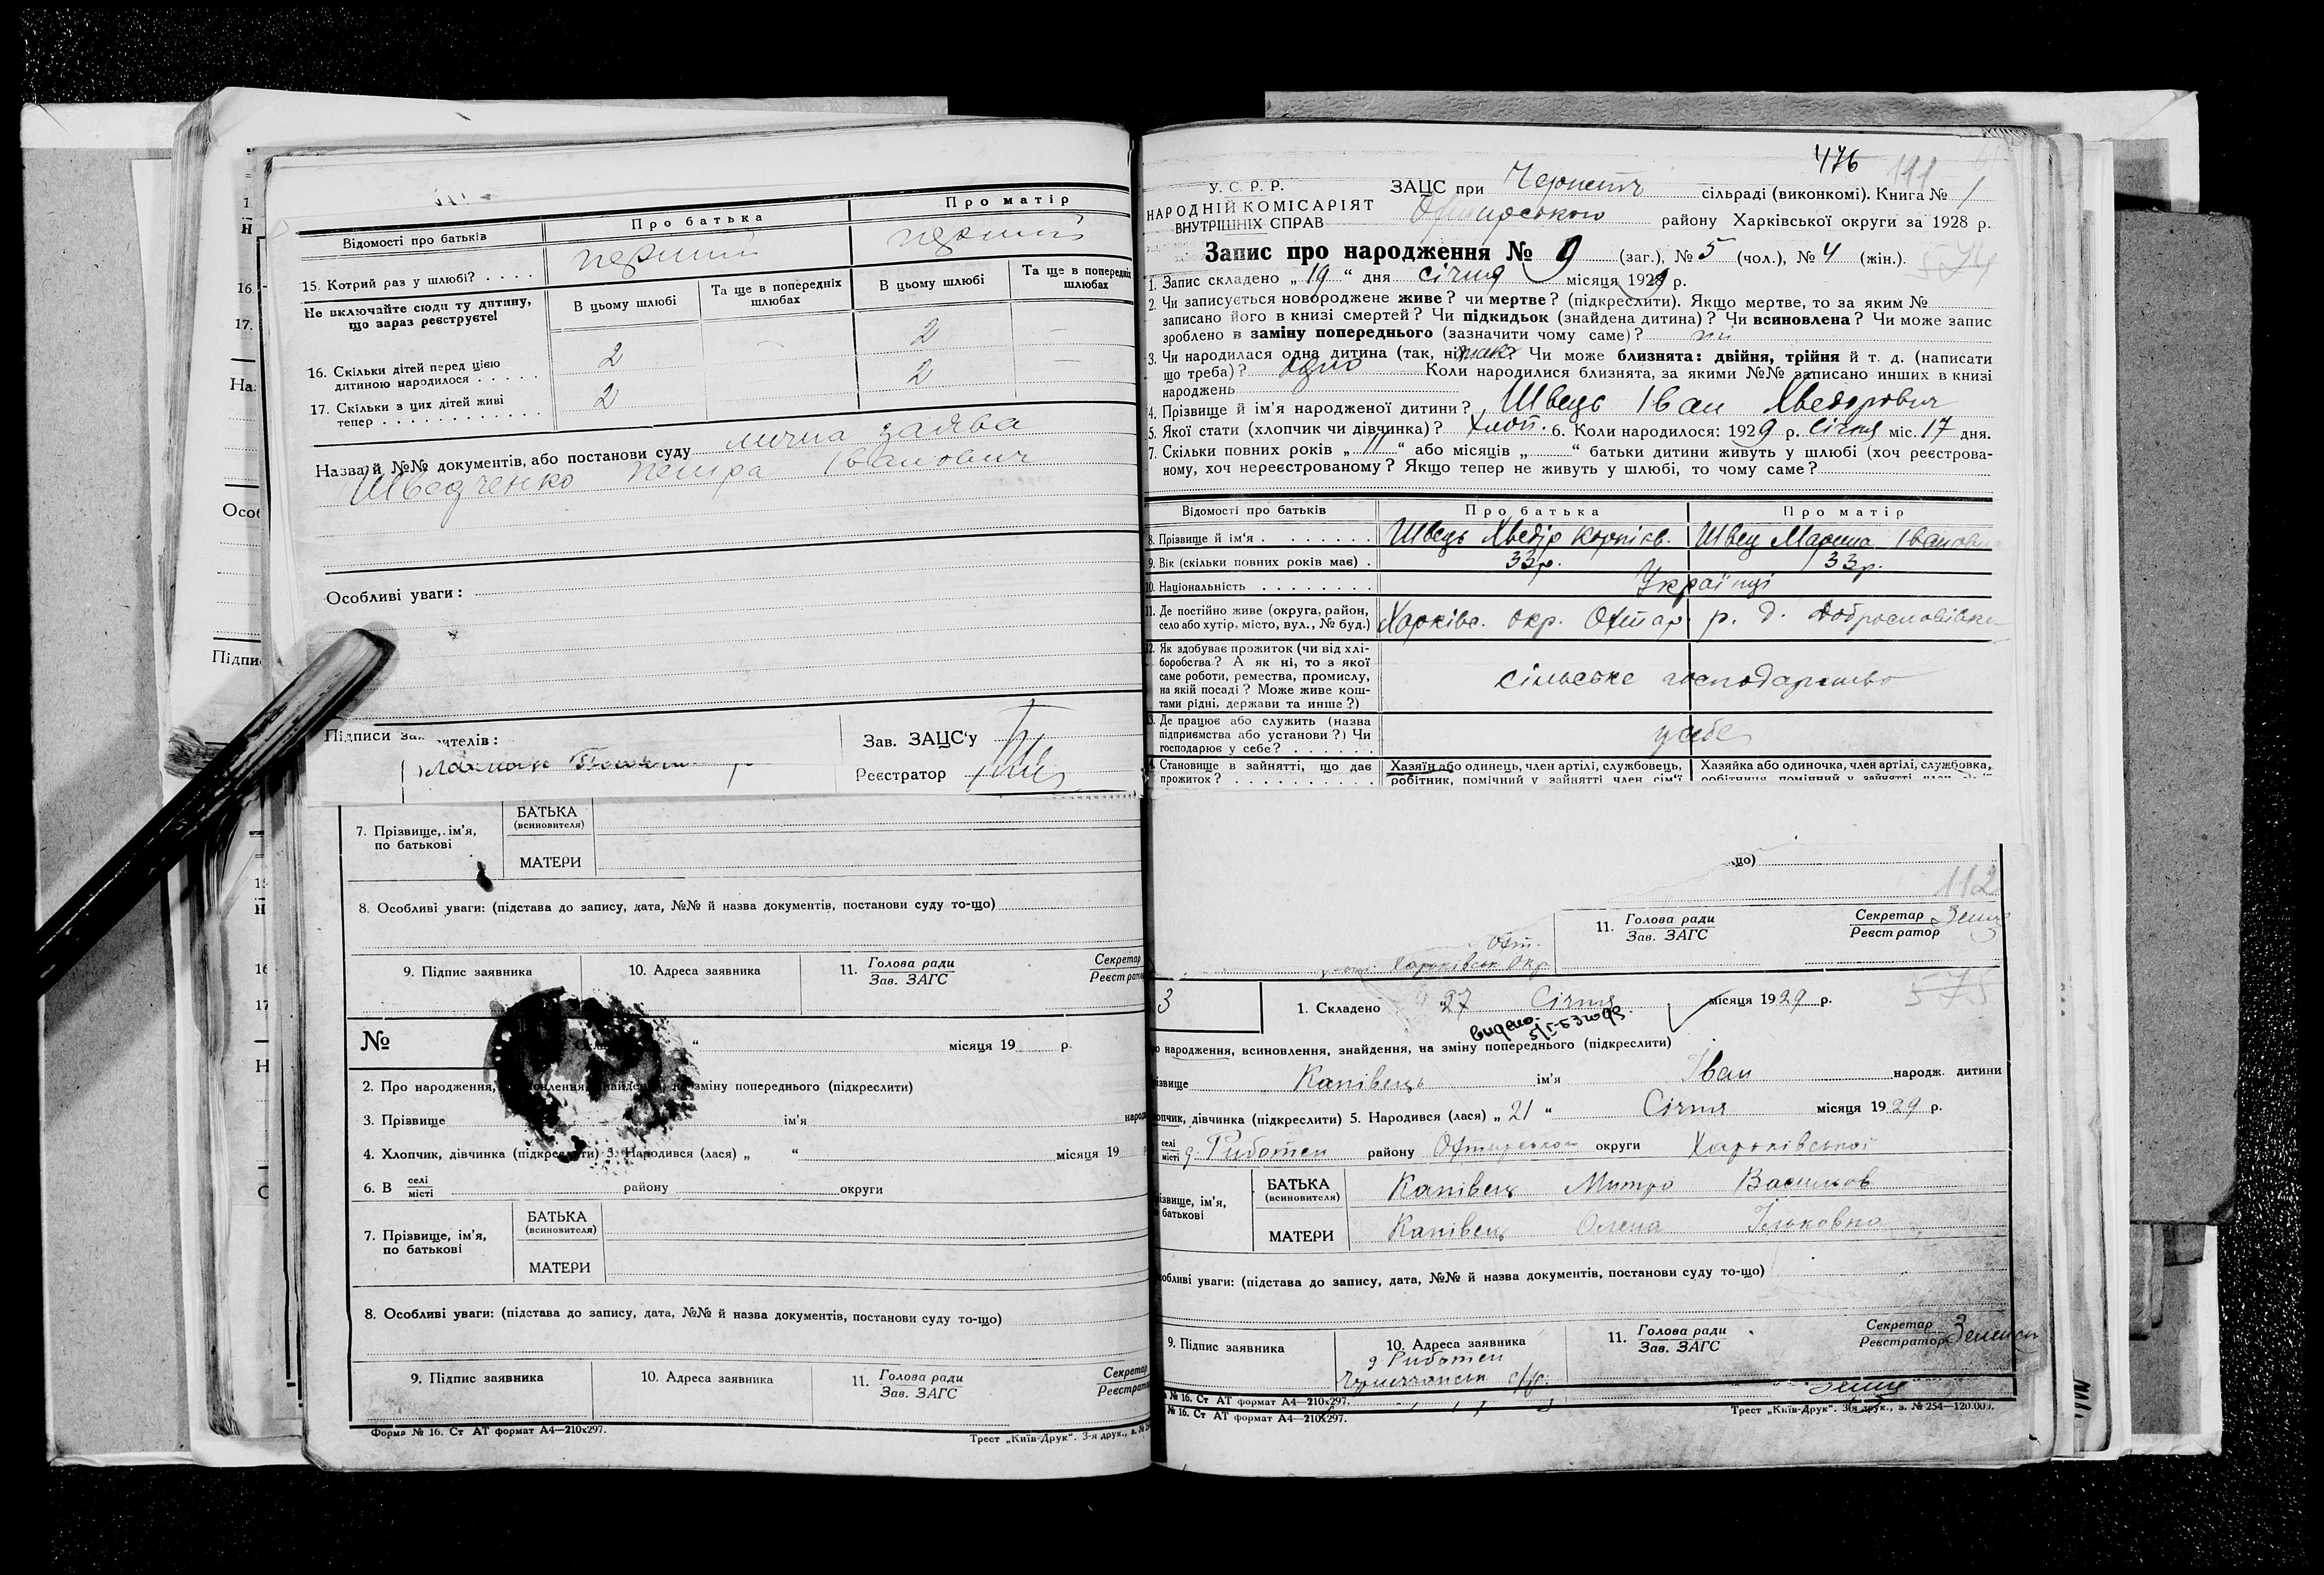 Відомості про батьків
Про батька
Про матір
15. Котрий раз у шлюбі? . . . .
перший
перший
Не включайте сюди ту дитину, що зараз реєструєте!
В цьому шлюбі
Та ще в попередніх шлюбах
В цьому шлюбі
Та ще в попередніх шлюбах
16. Скільки дітей перед цією
дитиною народилося . . . . .
2 — 2 —
17. Скільки з цих дітей живі
тепер . . . . . . . . . . . .
2 2 —
Назва й №№ документів, або постанови суду лична заява
Шведченко Петра Іванович
Особливі уваги:
Підписи за
ителів:
Зав. ЗАЦС'у
Реєстратор
7. Прізвище, ім'я,
по батькові
БАТЬКА
(всиновителя)
МАТЕРИ
8. Особливі уваги: (підстава до запису, дата, №№ й назва документів, постанови суду то-що)
9. Підпис заявника
10. Адреса заявника
11. Голова ради
Зав. ЗАГС
Секретар
Реєстратор
№
“ місяця 19 р.
2. Про народження, зміну попереднього (підкреслити)
3. Прізвище ім'я народ
4. Хлопчик, дівчинка (підкреслити) 5. Народився (лася) „ “ місяця 19
6. В селі
місті району округи
7. Прізвище, ім'я,
по батькові
БАТЬКА
(всиновителя)
МАТЕРИ
8. Особливі уваги: (підстава до запису, дата, №№ й назва документів, постанови суду то-що)
9. Підпис заявника
10. Адреса заявника
11. Голова ради
Зав. ЗАГС
Секретар
Реєстра
Форма № 16. Ст АТ формат А4—210x297.
Трест „Київ-Друк“. 3-я друк., з. №
476
У. С. Р. Р.
НАРОДНІЙ КОМІСАРІЯТ
ВНУТРІШНІХ СПРАВ
ЗАЦС при сільраді (виконкомі). Книга № 1
району Харківської округи за 1928 р.
Запис про народження № 9 (заг.), № 5 (чол.), № 4 (жін.).
1. Запис складено „ 19 “ дня січня місяця 1929 р.
2. Чи записується новороджене живе? чи мертве? (підкреслити). Якщо мертве, то за яким №
записано його в книзі смертей? Чи підкидьок (знайдена дитина)? Чи всиновлена? Чи може запис
зроблено в заміну попереднього (зазначити чому саме)? ні
3. Чи народилася одна дитина (так, ні)? так Чи може близнята: двійня, трійня й т. д. (написати
що треба)? одно Коли народилися близнята, за якими №№ записано инших в книзі
народжень
4. Прізвище й ім'я народженої дитини? Швець Іван Хведорович
5. Якої стати (хлопчик чи дівчинка)? хлоп. 6. Коли народилося: 1929 р. Січня міс. 17 дня.
7. Скільки повних років „ 11 “ або місяців „ “ батьки дитини живуть у шлюбі (хоч реєстрова-
ному, хоч нереєстрованому? Якщо тепер не живуть у шлюбі, то чому саме?
Відомості про батьків
Про батька
Про матір
8. Прізвище й ім'я . . . . . . . Швець Хведір Корніїв. Швец Марина Івановна
9. Вік (скільки повних років має) . 33р. 33р.
10. Національність . . . . . . . . Українці
11. Де постійно живе (округа, район,
село або хутір, місто, вул., № буд.) Харківс. окр. Охтар. р. д. Доброславівка
12. Як здобуває прожиток (чи від хлі-
боробства? А як ні, то з якої
саме роботи, ремества, промислу,
на якій посаді? Може живе кош-
тами рідні, держави та инше?)
сільське господарство
13. Де працює або служить (назва
підприємства або установи?) Чи
господарює у себе? . . . . . .
у себе
14. Становище в зайнятті, що дає
прожиток? . . . . . . . . . .
Хазяїн або одинець, член артілі, службовець,
робітник, помічний у зайнятті член сім'ї
Хазяйка або одиночка, член артілі, службовка,
що)
112
11. Голова ради
Зав. ЗАГС
Секретар
Реєстратор
Охт.
Харківськ Окр.
3
1. Складено „27 Січня місяця 1929 р.
видано
5/I-53 года
о народження, всиновлення, знайдення, на зміну попереднього (підкреслити)
ізвище Капівець ім'я Іван народж. дитини
опчик, дівчинка (підкреслити) 5. Народився (лася) „ 21 “ Січня місяця 1929 р.
селі
місті д. Риботен району Охтирського округи Харьківської
ізвище, ім'я,
батькові
БАТЬКА
(всиновителя)
Капівець Митро Васильов
МАТЕРИ
Капівець Олена Ільковна
обливі уваги: (підстава до запису, дата, №№ й назва документів, постанови суду то-що)
9. Підпис заявника
10. Адреса заявника
д Риботен
с/р.
11. Голова ради
Зав. ЗАГС
Секретар
Реєстратор
№ 16. Ст АТ формат А4—210x297.
№ 16. Ст АТ формат А4—210x297.
Трест „Київ-Друк“. 3-я друк., з. № 254—120.000.